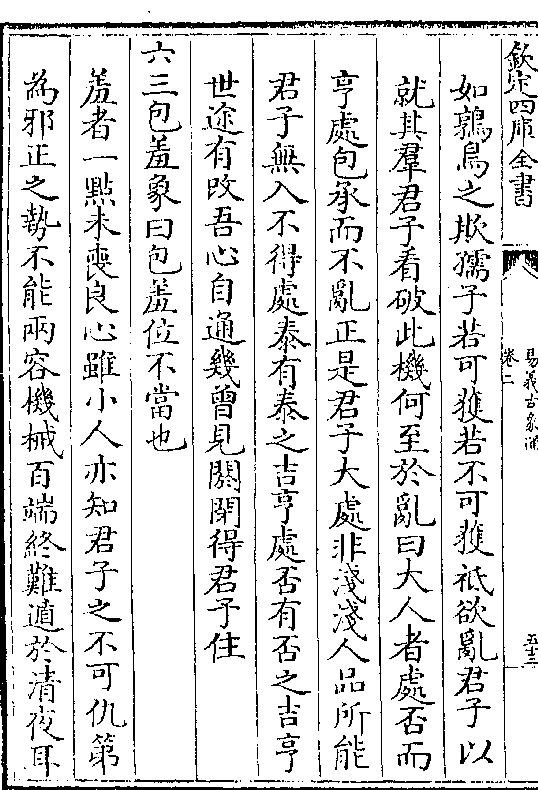 欽定四庫全書
易義古象通
卷二
五十三
如鶉鳥之欺孺子若可獲若不可獲祗欲亂君子以
就其羣君子看破此機何至於亂曰大人者處否而
亨處包承而不亂正是君子大處非淺淺人品所能
君子無入不得處泰有泰之吉亨處否有否之吉亨
世途有改吾心自通幾曾見關閉得君子住
六三包羞象曰包羞位不當也
羞者一點未喪良心雖小人亦知君子之不可仇第
為邪正之勢不能兩容機械百端終難遁於清夜耳